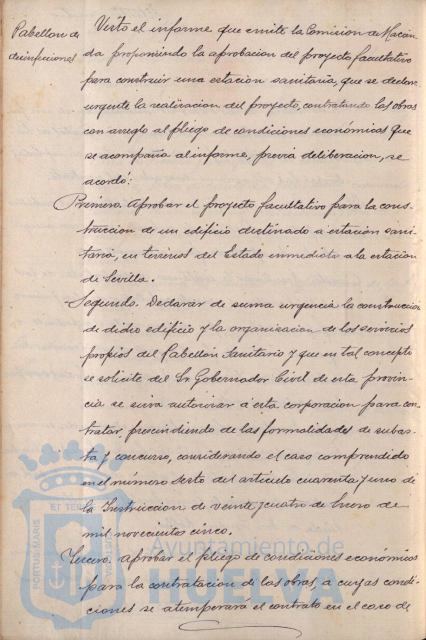 Pabellon de
desinfecciones
Visto el informe que emite la Comision de Hacien
da proponiendo la aprobacion del proyecto facultativo
para construir una estacion sanitaria, que se declare
urgente la realizacion del proyecto, contratando las obras
con arreglo al pliego de condiciones económicas que
se acompaña al informe, previa deliberacion, se
acordó:
Primero. Aprobar el proyecto facultativo para la cons-
truccion de un edificio destinado a estacion sani-
taria, en terrenos del Estado inmediato a la estacion
de Sevilla.
Segundo. Declarar de suma urgencia la construccion
de dicho edificio y la organizacion de los servicios
propios del Pabellon Sanitario y que en tal concepto
se solicite del Sr Gobernador Civil de esta provin-
cia se sirva autorizar a esta corporacion para con
tratar, prescindiendo de las formalidades de subas-
ta y concurso, considerando el caso comprendido
en el número sexto del articulo cuarenta y uno de
la Instruccion de veinte y cuatro de Enero de
mil novecientos cinco.
Tercero. Aprobar el pliego de condiciones económicas
para la contratacion de las obras, a cuyas condi-
ciones se atemperará el contrato en el caso de
PORTUS MARIS
ET TERR
Ayuntamiento de
HUELVA